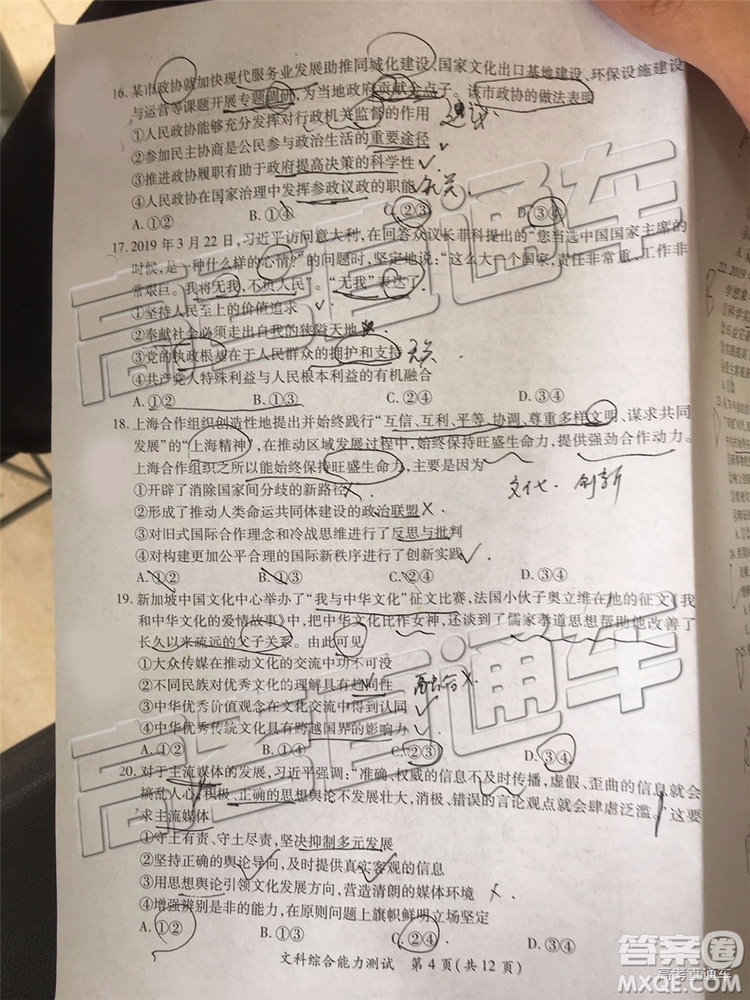 16. 某市政协就加快现代服务业发展助推同城化建设、国家文化出口基地建设、环保设施建设
与运营等课题开展专题调研,为当地政府贡献金点子。该市政协的做法表明
①人民政协能够充分发挥对行政机关监督的作用
②参加民主协商是公民参与政治生活的重要途径
③推进政协履职有助于政府提高决策的科学性
④人民政协在国家治理中发挥参政议政的职能 无关
A. ①② B. ①④ C. ②③ D. ③④
17. 2019 年 3 月 22 日,习近平访问意大利,在回答众议长菲科提出的“您当选中国国家主席的
时候,是一种什么样的心情?”的问题时,坚定地说:“这么大一个国家,责任非常重、工作非
常艰巨。我将无我,不负人民”。“无我”表达了
①坚持人民至上的价值追求
②奉献社会必须走出自我的狭隘天地
③党的执政根基在于人民群众的拥护和支持 无关
④共产党人特殊利益与人民根本利益的有机融合
A. ①② B. ①③ C. ②④ D. ③④
18. 上海合作组织创造性地提出并始终践行“互信、互利、平等、协调、尊重多样文明、谋求共同
发展”的“上海精神”,在推动区域发展过程中,始终保持旺盛生命力,提供强劲合作动力。
上海合作组织之所以能始终保持旺盛生命力,主要是因为
文化、创新
①开辟了消除国家间分歧的新路径
②形成了推动人类命运共同体建设的政治联盟
③对旧式国际合作理念和冷战思维进行了反思与批判
④对构建更加公平合理的国际新秩序进行了创新实践
A. ①② B. ①③ C. ②④ D. ③④
19. 新加坡中国文化中心举办了“我与中华文化”征文比赛,法国小伙子奥立维在他的征文《我
和中华文化的爱情故事》中,把中华文化比作女神,还谈到了儒家孝道思想帮助他改善了
长久以来疏远的父子关系。由此可见
①大众传媒在推动文化的交流中功不可没
②不同民族对优秀文化的理解具有趋同性 融合
③中华优秀价值观念在文化交流中得到认同
④中华优秀传统文化具有跨越国界的影响力
A. ①② B. ①④ C. ②③ D. ③④
20. 对于主流媒体的发展,习近平强调:“准确、权威的信息不及时传播,虚假、歪曲的信息就会
搞乱人心;积极、正确的思想舆论不发展壮大,消极、错误的言论观点就会肆虐泛滥。”这要
求主流媒体
①守土有责、守土尽责,坚决抑制多元发展
②坚持正确的舆论导向,及时提供真实客观的信息
③用思想舆论引领文化发展方向,营造清朗的媒体环境
④增强辨别是非的能力,在原则问题上旗帜鲜明立场坚定
A. ①② B. ①③ C. ②④ D. ③④
文科综合能力测试 第 4 页(共 12 页)
高考直通车
高考直通车
答案圈
MXQE.COM
高考直通车